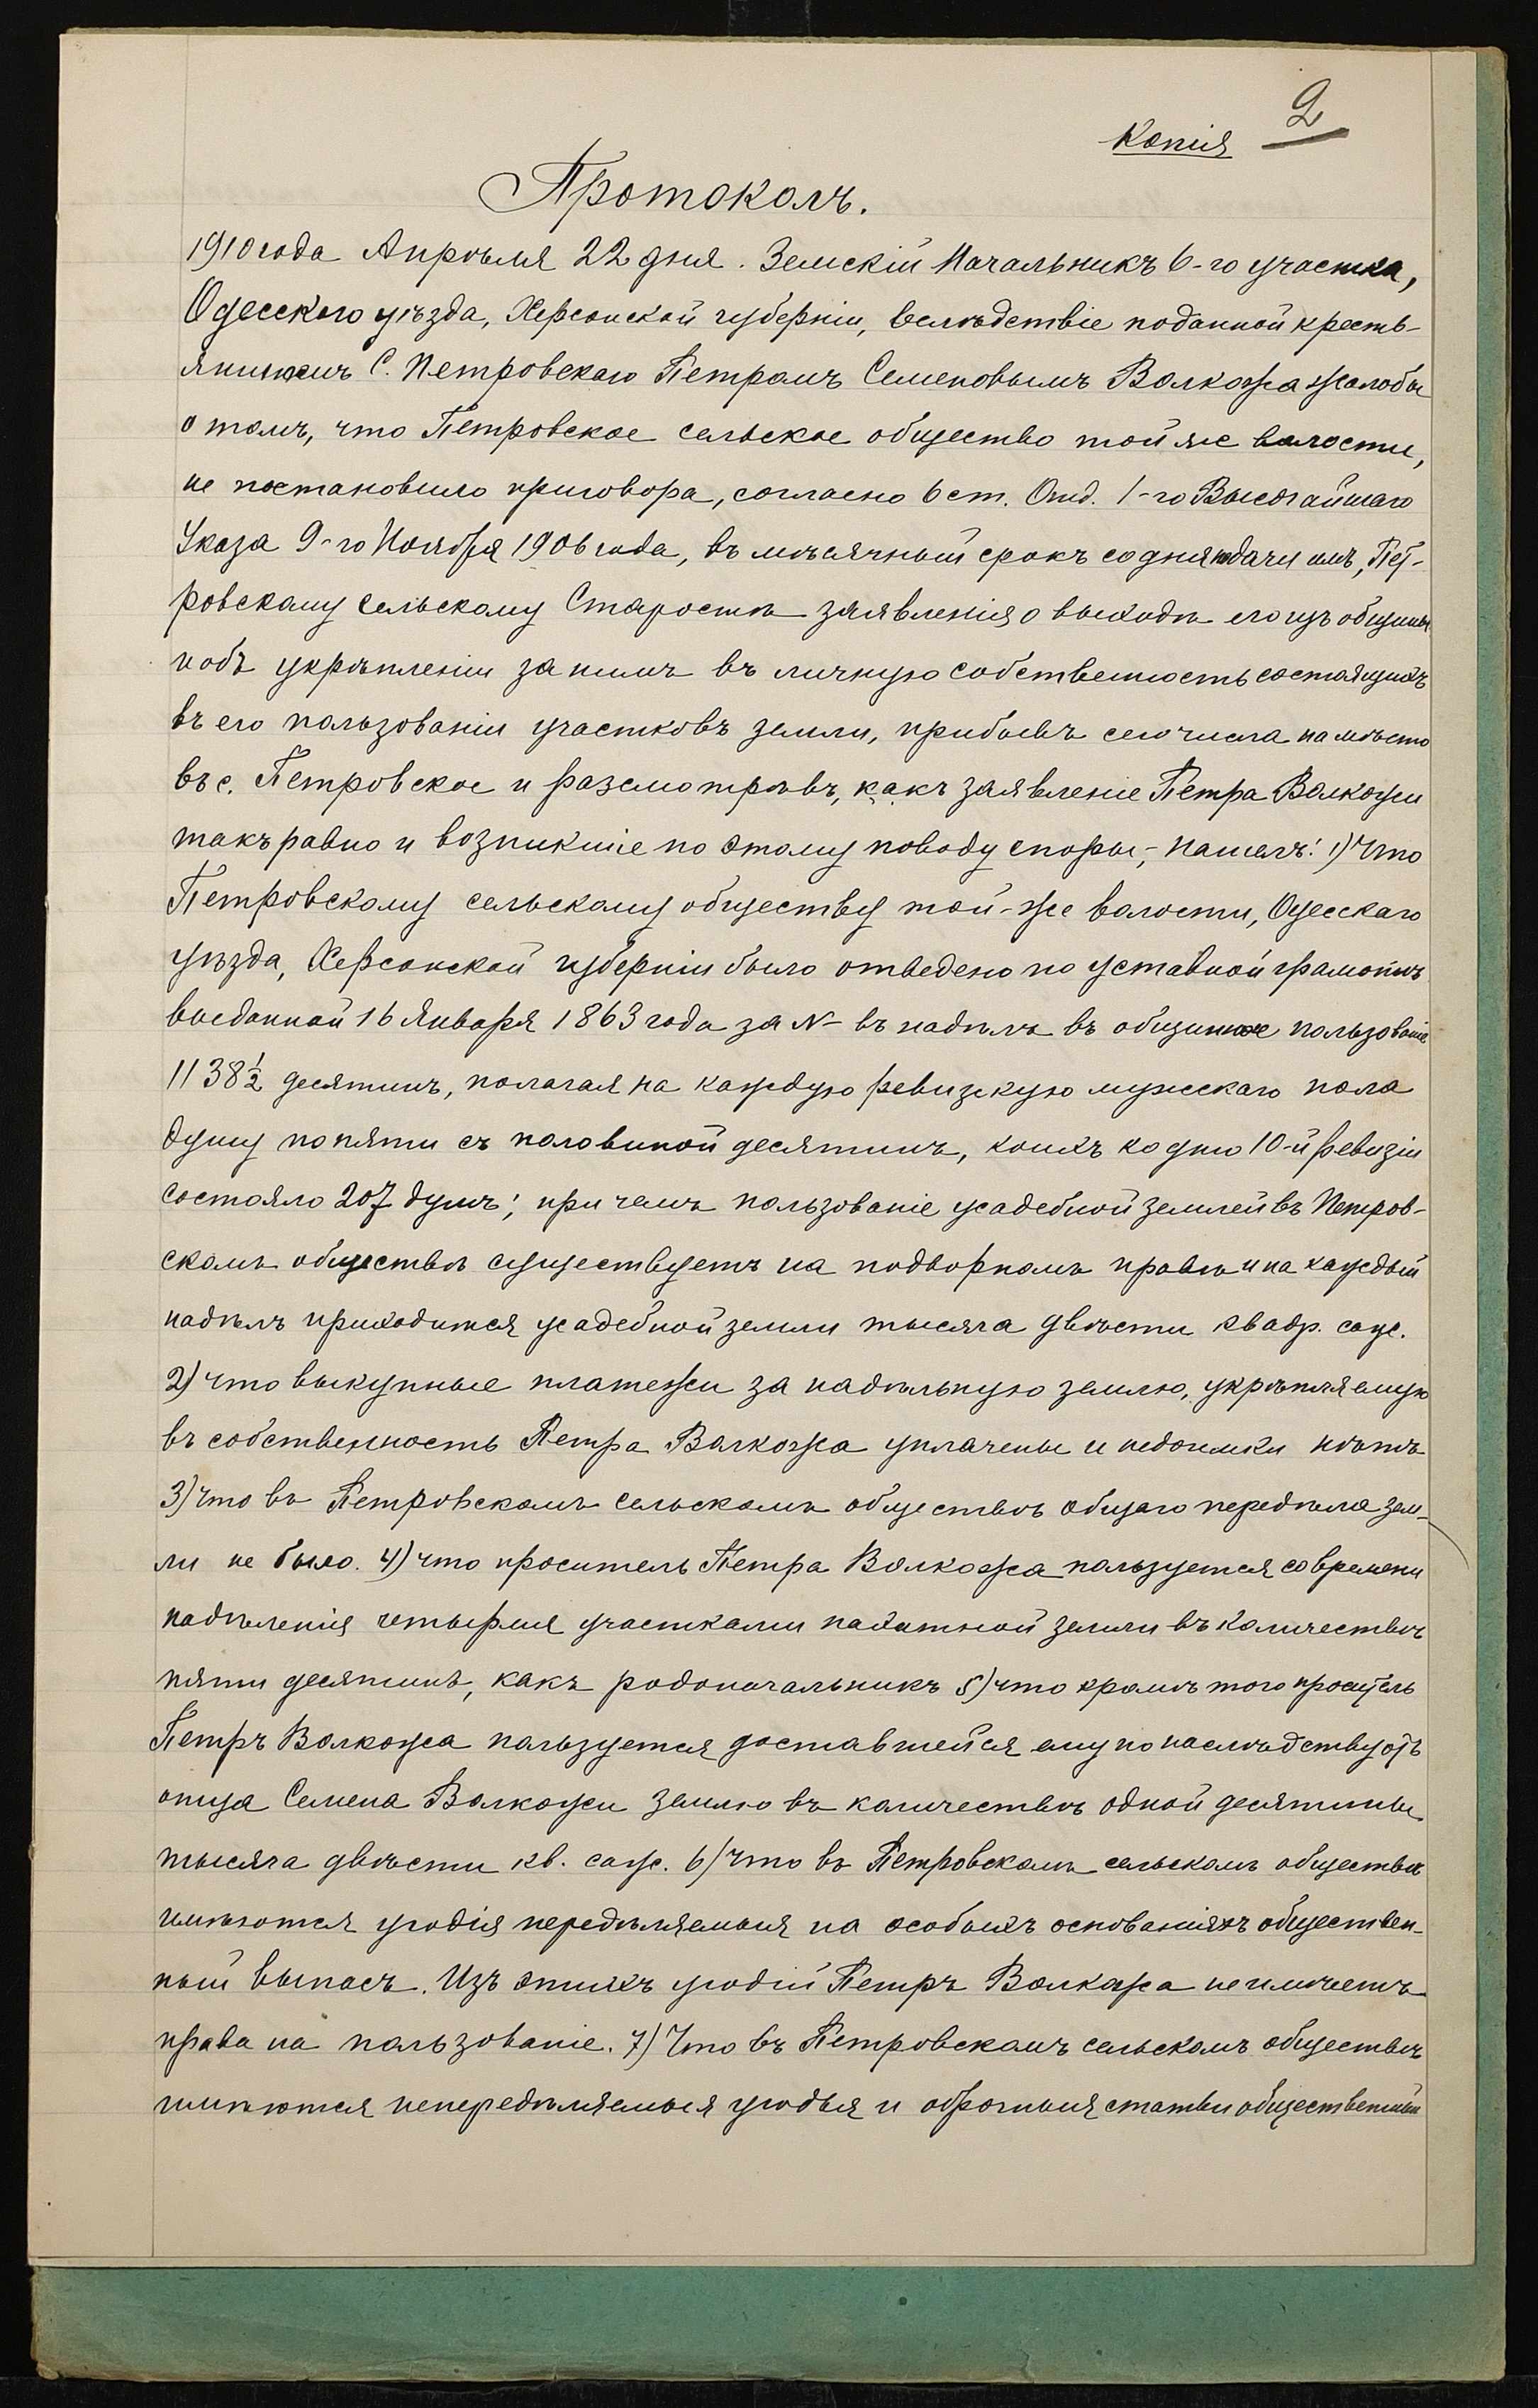 2
Копія
Протоколъ.
1910 года Апрѣля 22 дня. Земскій Начальникъ 6-го участка,
Одесскаго уѣзда, Херсонской губерніи, вслѣдствіе поданной кресть-
яниномъ С. Петровскаго Петромъ Семеновымъ Волкожа жалобы
о томъ, что Петровское сельское общество той же волости,
не постановило приговора, согласно 6 ст. Отд. 1-го Высочайшаго
Указа 9-го Ноября 1906 года, въ мѣсячный срокъ со дня подачи имъ, Пет-
ровскому сельскому Старостѣ заявленія о выходѣ его изъ общины
и объ укрѣпленіи за нимъ въ личную собственность состоящихъ
въ его пользованіи участковъ земли, прибывъ сего числа на мѣсто
въ с. Петровское и разсмотрѣвъ, какъ заявленіе Петра Волкожи
такъ равно и возникшіе по этому поводу споры,- нашелъ: 1) Что
Петровскому сельскому обществу той-же волости, Одесскаго
уѣзда, Херсонской губерніи было отведено по уставной грамотѣ
выданной 16 Января 1863 года за № въ надѣлъ въ общинное пользованіе
1138 1/2 десятинъ, полагая на каждую ревизскую мужескаго пола
душу по пяти съ половиной десятинъ, коихъ ко дню 10-й ревизіи
состояло 207 душъ; при чемъ пользованіе усадебной землей въ Петров-
скомъ обществѣ существуетъ на подворномъ правѣ и на каждый
надѣлъ приходится усадебной земли тысяча двѣсти квадр. саж.
2) что выкупные платежи за надѣльную землю, укрѣпляемую
въ собственность Петра Волкожа уплачены и недоимки нѣтъ
3) что въ Петровскомъ сельскомъ обществѣ общаго передѣла зем-
ли не было. 4) что проситель Петра Волкожа пользуется со времени
надѣленія четырмя участками пахатной земли въ количествѣ
пяти десятинъ, какъ родоначальникъ 5) что кромѣ того проситель
Петръ Волкожа пользуется доставшейся ему по наслѣдству отъ
отца Семена Волкожи землею въ количествѣ одной десятины
тысяча двѣсти кв. саж. 6) Что въ Петровскомъ сельскомъ обществѣ
имѣются угодія передѣляемыя на особыхъ основаніяхъ обществен-
ный выпасъ. Изъ этихъ угодій Петръ Волкожа не имѣетъ
права на пользованіе. 7) Что въ Петровскомъ сельскомъ обществѣ
имѣются непередѣляемыя угодья и оброчныя статьи общественный